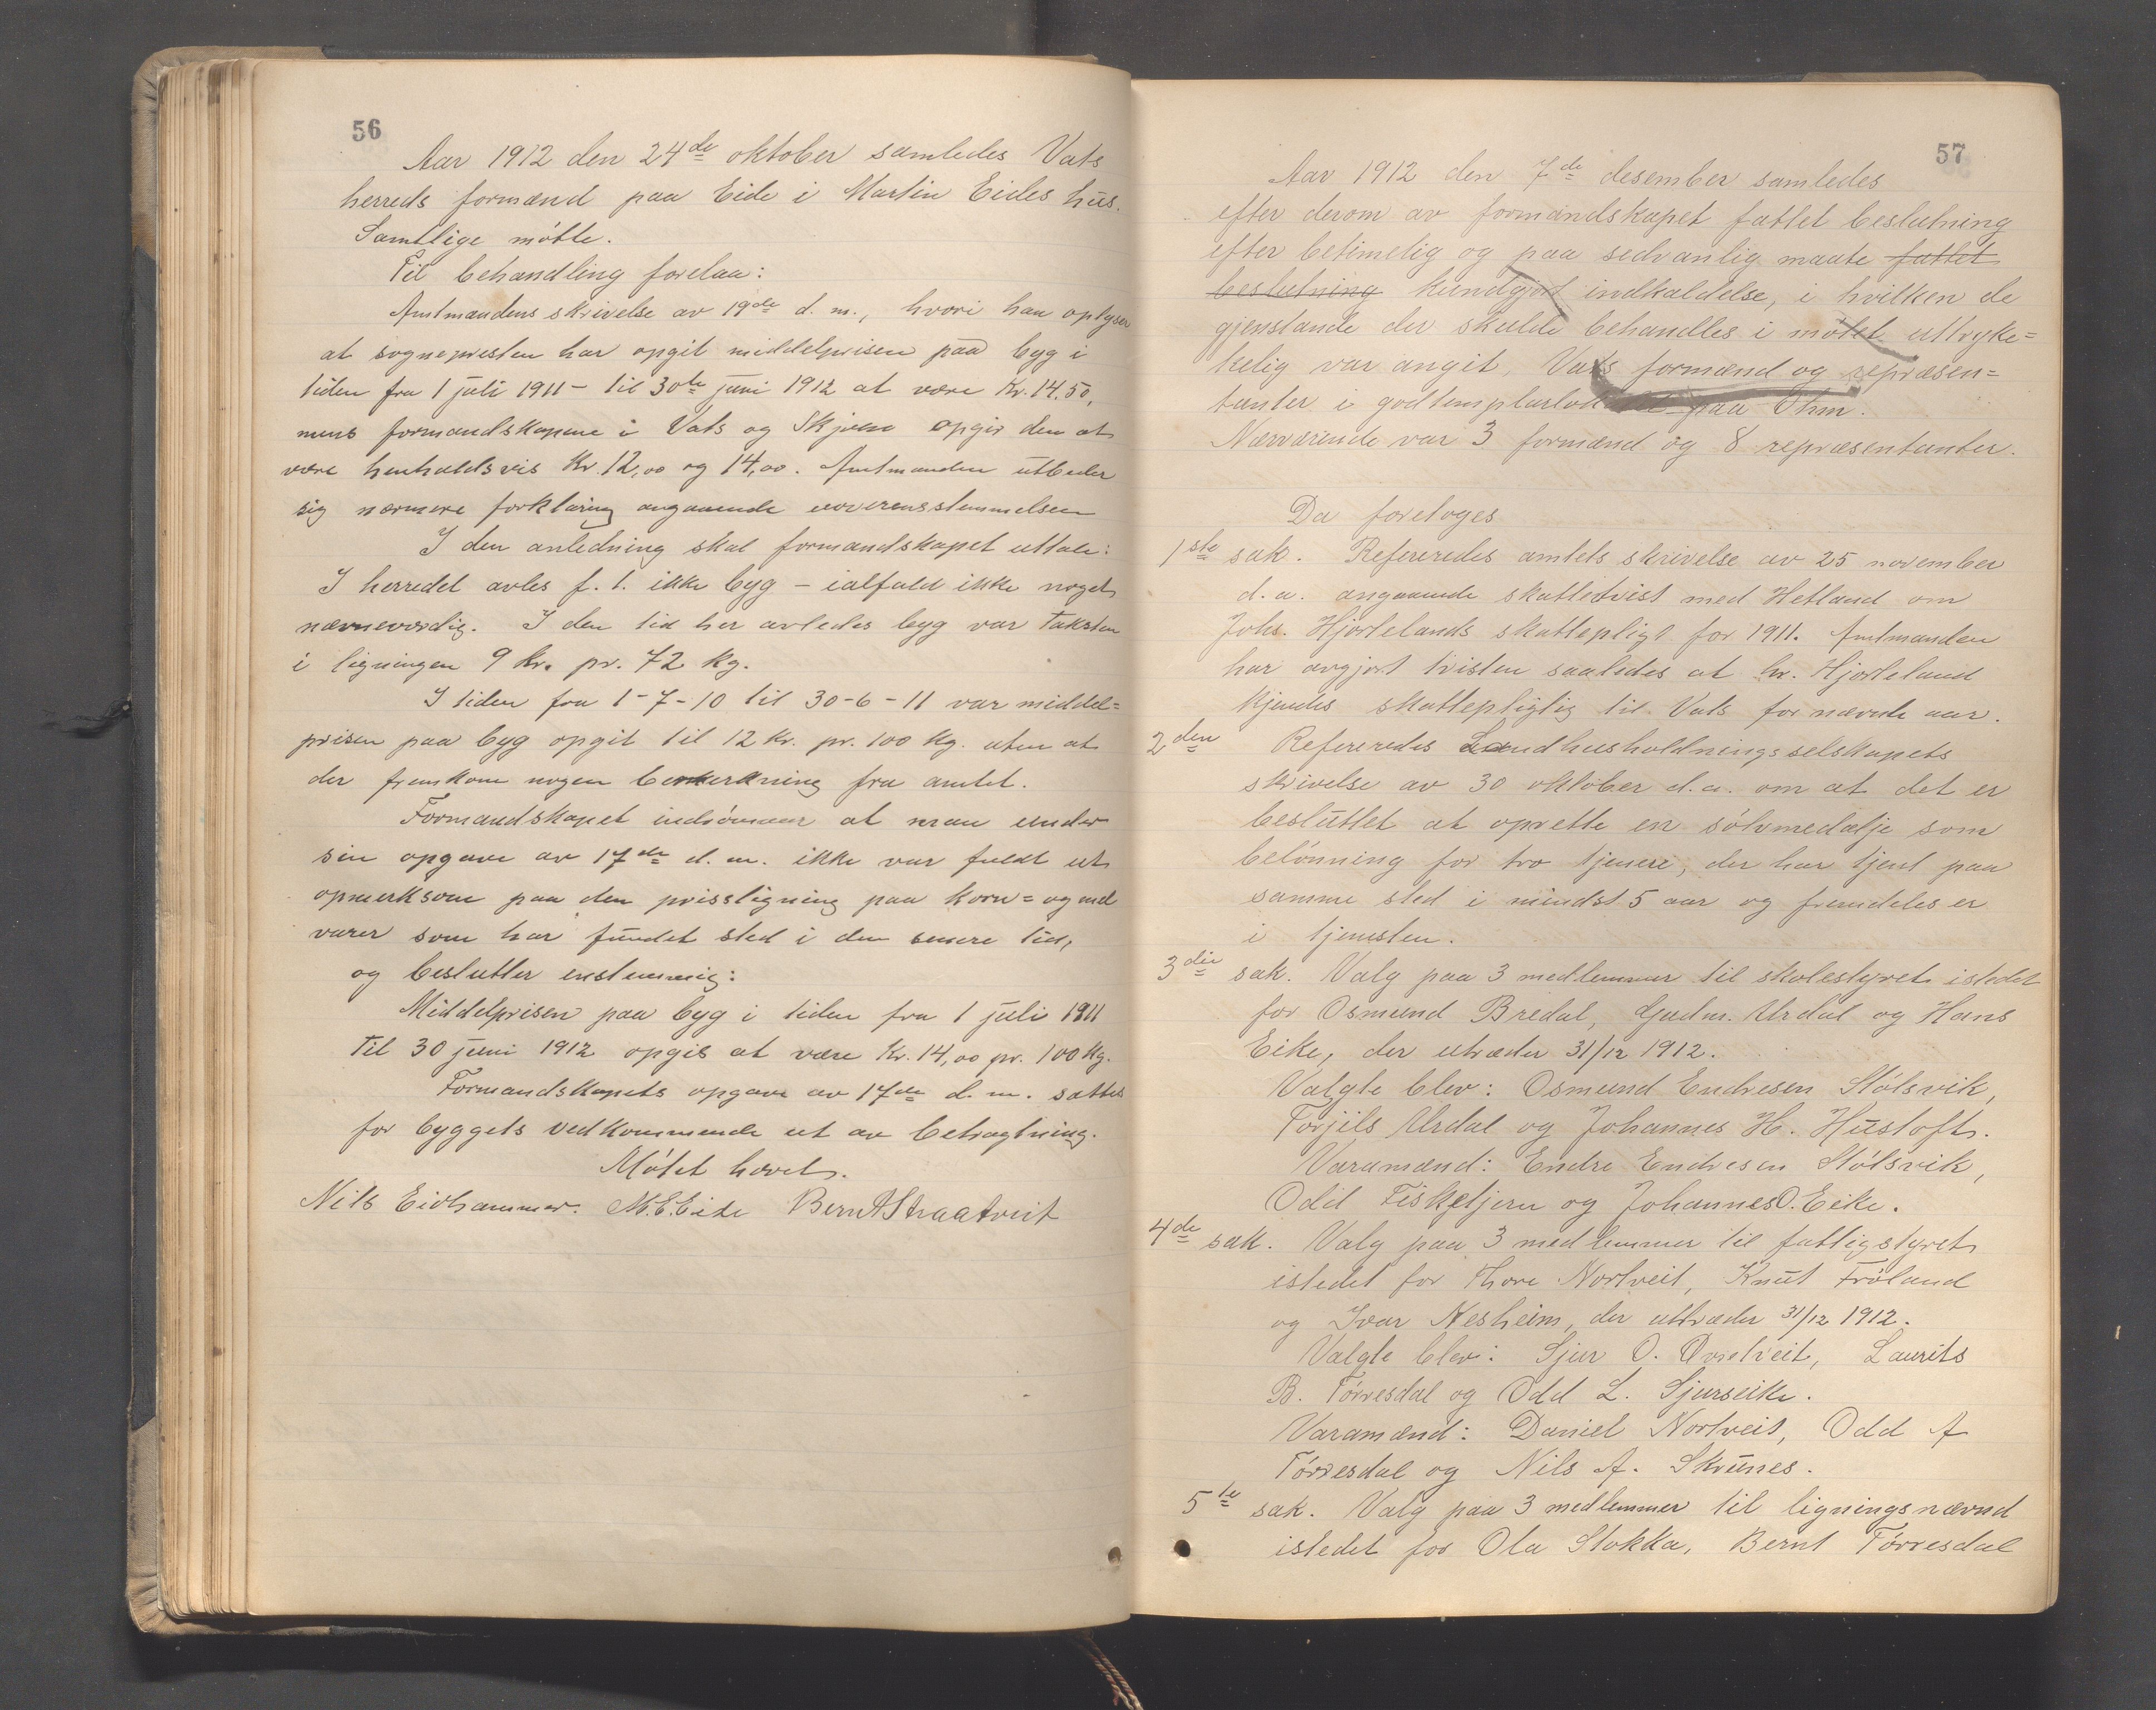 56
Aar 1912 den 24de oktober samledes Vats
herreds formænd paa Eide i Martin Eides hus.
Samtlige møtte.
Til behandling forelaa:
Amtmandens skrivelse av 19de d. m., hvori han oplyser
at sognepresten har opgit middelprisen paa byg i
tiden fra 1 juli 1911 – til 30te juni 1912 at være Kr. 14,50,
mens formandskapene i Vats og Skjold opgir den at
være henholdsvis Kr. 12,00 og 14,00. Amtmanden utbeder
sig nærmere forklaring angaaende uoverensstemmelsen
I den anledning skal formandskapet uttale:
I herredet avles f. t. ikke byg – ialfald ikke noget
nævneværdig. I den tid her avledes byg var taksten
i ligningen 9 kr. pr. 72 kg.
I tiden fra 1-7-10 til 30-6-11 var middel=
prisen paa byg opgit til 12 kr. pr. 100 kg. uten at
der fremkom nogen bemerkning fra amtet.
Formandskapet indrømmer at man under
sin opgave av 17de d. m. ikke var fuldt ut
opmerksom paa den prisstigning paa korn= og mel
varer som har fundet sted i den senere tid,
og beslutter enstemmig:
Middelprisen paa byg i tiden fra 1 juli 1911
til 30 juni 1912 opgis at være Kr. 14,00 pr. 100 kg.
Formandskapets opgave av 17de d. m. sættes
for byggets vedkommende ut av betragtning.
Møtet hævet.
Nils Eidhammer. M. E. Eide Bernt A Straatveit
57
Aar 1912 den 7de desember samledes
efter derom av formandskapet fattet beslutning
efter betimelig og paa sedvanlig maate fattet
beslutning kundgjort indkaldelse, i hvilken de
gjenstande der skulde behandles i møtet uttryke=
kelig var angit, Vats formænd og repræsen=
tanter i godtemplarlokalet paa Ohm.
Nærværende var 3 formænd og 8 repræsentanter.
Da foretoges
1ste sak. Refereredes amtets skrivelse av 25 november
d. a. angaaende skattetvist med Hetland om
Johs. Hjortelands skattepligt for 1911. Amtmanden
har avgjort tvisten saaledes at hr. Hjorteland
kjendes skattepligtig til Vats for nævnte aar.
2den Refereredes Landhusholdningsselskapets
skrivelse av 30 oktober d. a. om at det er
besluttet at oprette en sølvmedalje som
belønning for tro tjenere, der har tjent paa
samme sted i mindst 5 aar og fremdeles er
i tjenesten.
3die sak. Valg paa 3 medlemmer til skolestyret istedet
for Osmund Bredal, Gudm. Urdal og Hans
Eike, der utræder 31/12 1912.
Valgte blev: Osmund Endresen Stølsvik,
Torjils Urdal og Johannes H. Hustoft.
Varamænd: Endre Endresen Stølsvik,
Odd Fisketjern og Johannes O. Eike.
4de sak. Valg paa 3 medlemmer til fattigstyret
istedet for Thore Nortveit, Knut Frøland
og Ivar Nesheim, der uttræder 31/12 1912.
Valgte blev: Sjur O. Øvretveit, Laurits
B. Tørresdal og Odd L. Sjurseike.
Varamænd: Daniel Nortveit, Odd A
Tørresdal og Nils A. Skrunes.
5te sak. Valg paa 3 medlemmer til ligningsnævnd
istedet for Ola Stokka, Bernt Tørresdal